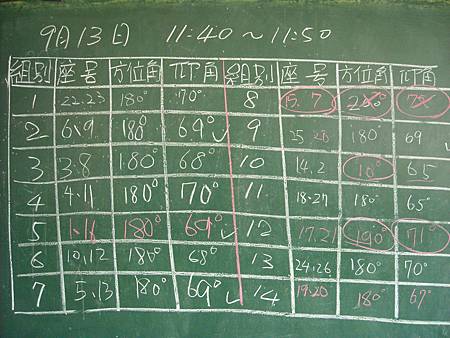 9月13日 11:40～11:50
組別 座号 方位角 仰角 組別 座号 方位角 仰角
1 22.23 180° 70° 8 15.7 200° 72°
2 6.9 180° 69° ✓ 9 25 180° 69 ✓
3 3.8 180° 68° 10 14.2 10° 65
4 4.11 180° 70° 11 18.27 180° 65°
5 1.16 180° 69° ✓ 12 17.21 190° 71°
6 10.12 180° 68° 13 24.26 180° 70°
7 5.13 180° 69° ✓ 14 19.20 180° 67°